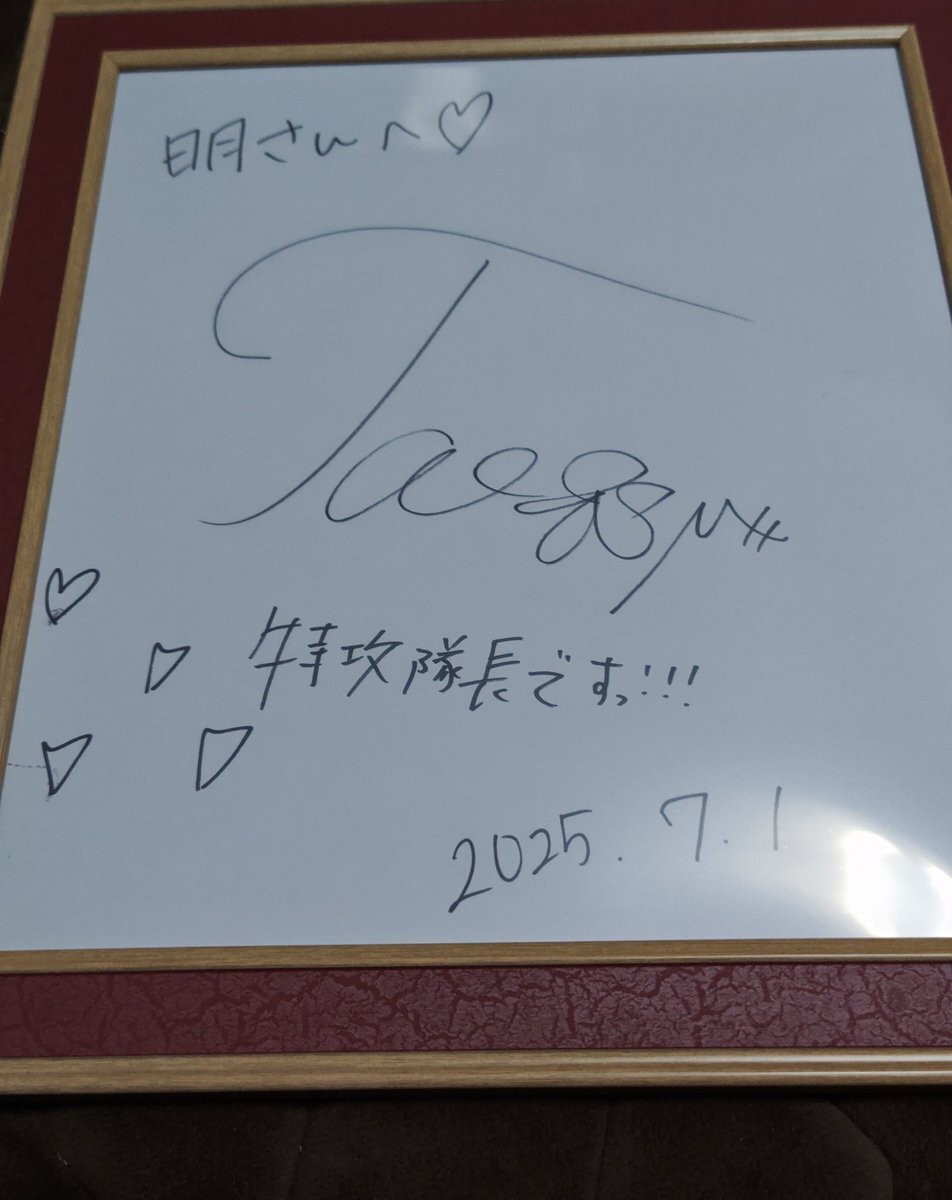 明さんへ♡
特攻隊長ですっ!!!
2025.7.1